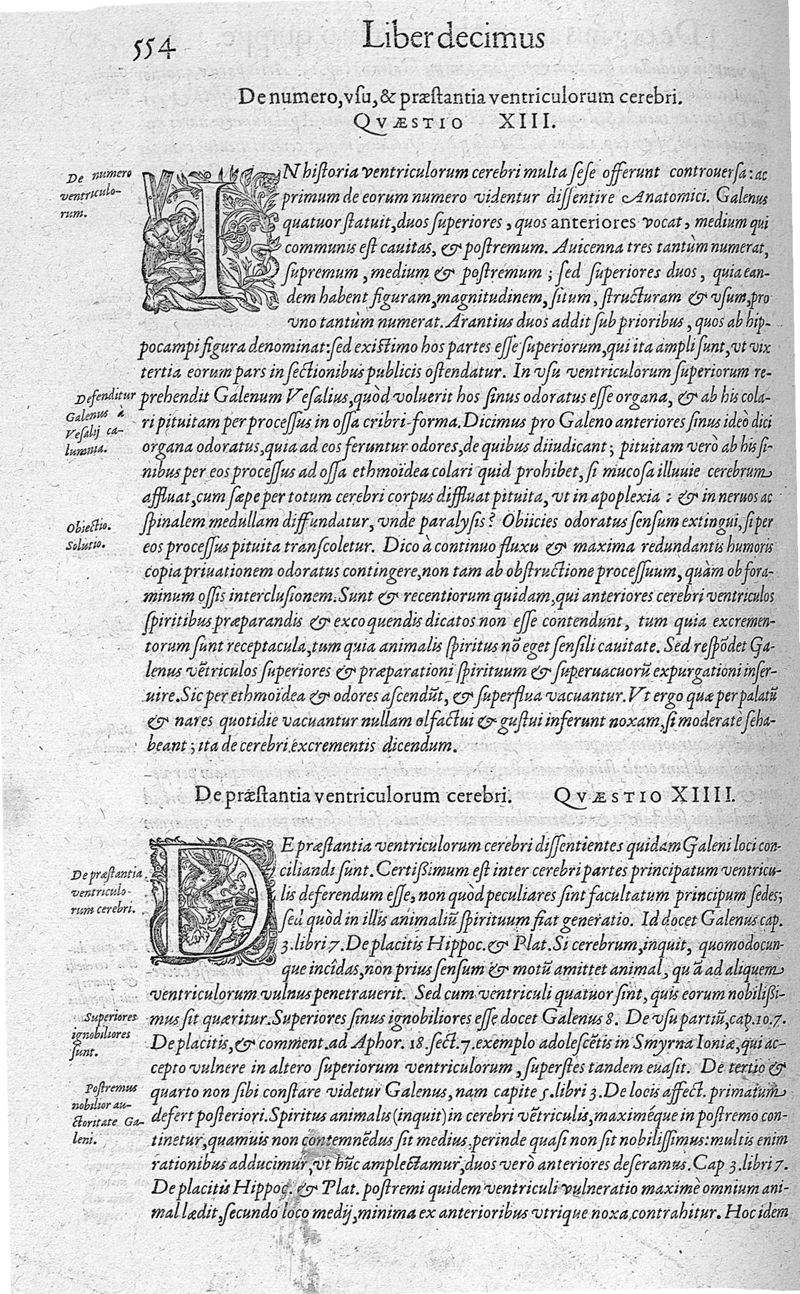 554
Liber decimus
De numero, vsu, & præstantia ventriculorum cerebri.
QVÆSTIO XIII.
De numero
ventriculo-
rum.
IN historia ventriculorum cerebri multa sese offerunt controuersa: ac
primum de eorum numero videntur dissentire Anatomici. Galenus
quatuor statuit, duos superiores, quos anteriores vocat, medium qui
communis est cauitas, & postremum. Auicenna tres tantùm numerat,
supremum, medium & postremum; sed superiores duos, quia ean-
dem habent figuram, magnitudinem, situm, structuram & vsum, pro
vno tantùm numerat. Arantius duos addit sub prioribus, quos ab hip-
pocampi figura denominat: sed existimo hos partes esse superiorum, qui ita ampli sunt, vt vix
tertia eorum pars in sectionibus publicis ostendatur. In vsu ventriculorum superiorum re-
Defenditur
Galenus à
Vesalij ca-
lumnia.
prehendit Galenum Vesalius, quòd voluerit hos sinus odoratus esse organa, & ab his cola-
ri pituitam per processus in ossa cribri-forma. Dicimus pro Galeno anteriores sinus ideò dici
organa odoratus, quia ad eos feruntur odores, de quibus diiudicant; pituitam verò ab his si-
nibus per eos processus ad ossa ethmoïdea colari quid prohibet, si mucosa illuuie cerebrum
affluat, cum sæpe per totum cerebri corpus diffluat pituita, vt in apoplexia: & in neruos ac
Obiectio.
Solutio.
spinalem medullam diffundatur, vnde paralysis? Obiicies odoratus sensum extingui, si per
eos processus pituita transcoletur. Dico à continuo fluxu & maxima redundantis humoris
copia priuationem odoratus contingere, non tam ab obstructione processuum, quàm ob fora-
minum ossis interclusionem. Sunt & recentiorum quidam, qui anteriores cerebri ventriculos
spiritibus præparandis & excoquendis dicatos non esse contendunt, tum quia excremen-
torum sunt receptacula, tum quia animalis spiritus nō eget sensili cauitate. Sed respōdet Ga-
lenus vẽtriculos superiores & præparationi spirituum & superuacuorũ expurgationi inser-
uire. Sic per ethmoïdea & odores ascendũt, & superflua vacuantur. Vt ergo quæ per palatũ
& nares quotidie vacuantur nullam olfactui & gustui inferunt noxam, si moderatè seha-
beant; ita de cerebri excrementis dicendum.
De præstantia ventriculorum cerebri. QVÆSTIO XIIII.
De præstantia
ventriculo-
rum cerebri.
DE præstantia ventriculorum cerebri dissentientes quidam Galeni loci con-
ciliandi sunt. Certißimum est inter cerebri partes principatum ventricu-
lis deferendum esse, non quòd peculiares sint facultatum principum sedes;
sed quòd in illis animaliũ spirituum fiat generatio. Id docet Galenus cap.
3. libri 7. De placitis Hippoc. & Plat. Si cerebrum, inquit, quomodocun-
que incîdas, non prius sensum & motũ amittet animal, quã ad aliquem
ventriculorum vulnus penetrauerit. Sed cum ventriculi quatuor sint, quis eorum nobilißi-
Superiores
ignobiliores
sunt.
mus sit quæritur. Superiores sinus ignobiliores esse docet Galenus 8. De vsu partiũ, cap. 10. 7.
De placitis, & comment. ad Aphor. 18. sect. 7. exemplo adolescẽtis in Smyrna Ioniæ, qui ac-
cepto vulnere in altero superiorum ventriculorum, superstes tandem euasit. De tertio &
Postremus
nobilior au-
ctoritate Ga-
leni.
quarto non sibi constare videtur Galenus, nam capite 5. libri 3. De locis affect. primatum
defert posteriori. Spiritus animalis (inquit) in cerebri vẽtriculis, maximéque in postremo con-
tinetur, quamuis non contemnẽdus sit medius, perinde quasi non sit nobilissimus: multis enim
rationibus adducimur, vt hũc amplectamur, duos verò anteriores deseramus. Cap 3. libri 7.
De placitis Hippoc. & Plat. postremi quidem ventriculi vulneratio maximè omnium ani-
mal lædit, secundo loco medij, minima ex anterioribus vtrique noxa contrahitur. Hoc idem